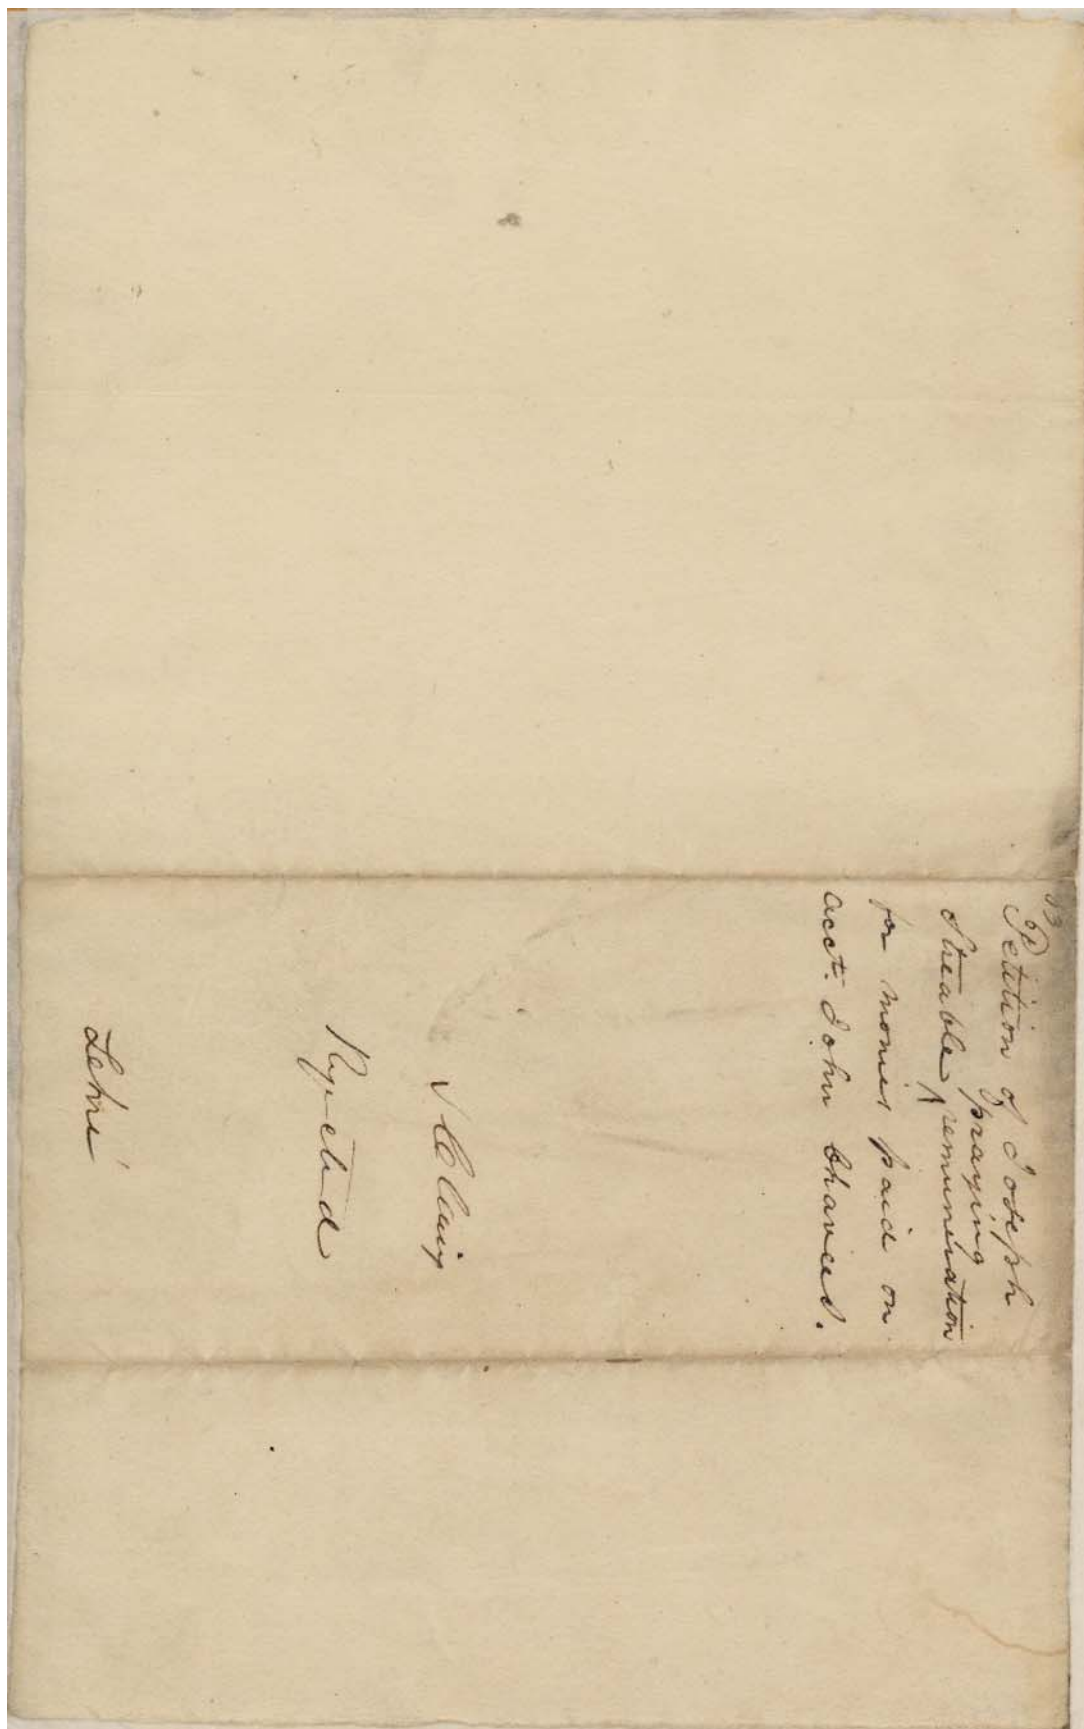 83
Petition of Joseph
Streable ^ praying remuneration
for monies paid on
acct. John Chavees.
✓ Claims
Rejected
Lehré